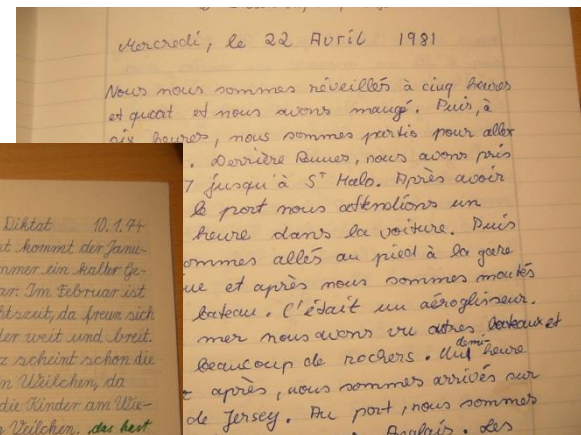 Mercredi, le 22 Avril 1981
Nous nous sommes réveillés à cinq heures
et quart et nous avons mangé. Puis, à
six heures, nous sommes partis pour aller
. Derrière Rennes, nous avons pris
7 jusqu'à St Malo. Après avoir
le port nous attendions un
heure dans la voiture. Puis
ommes allés au pied à la gare
ue et après nous sommes montés
bateau. C'était un aéroglisseur.
mer nous avons vu autres bateaux et
beaucoup de rochers. Une demi-heure
après, nous sommes arrivés sur
de Jersey. Au port, nous sommes
Anglais. Les
Diktat 10.1.74
t kommt der Janu-
mmer ein kalter Ge-
ar. Im Februar ist
htszeit, da freun sich
der weit und breit.
z scheint schon die
n Veilchen, da
die Kinder am Wie-
n Veilchen, das hast